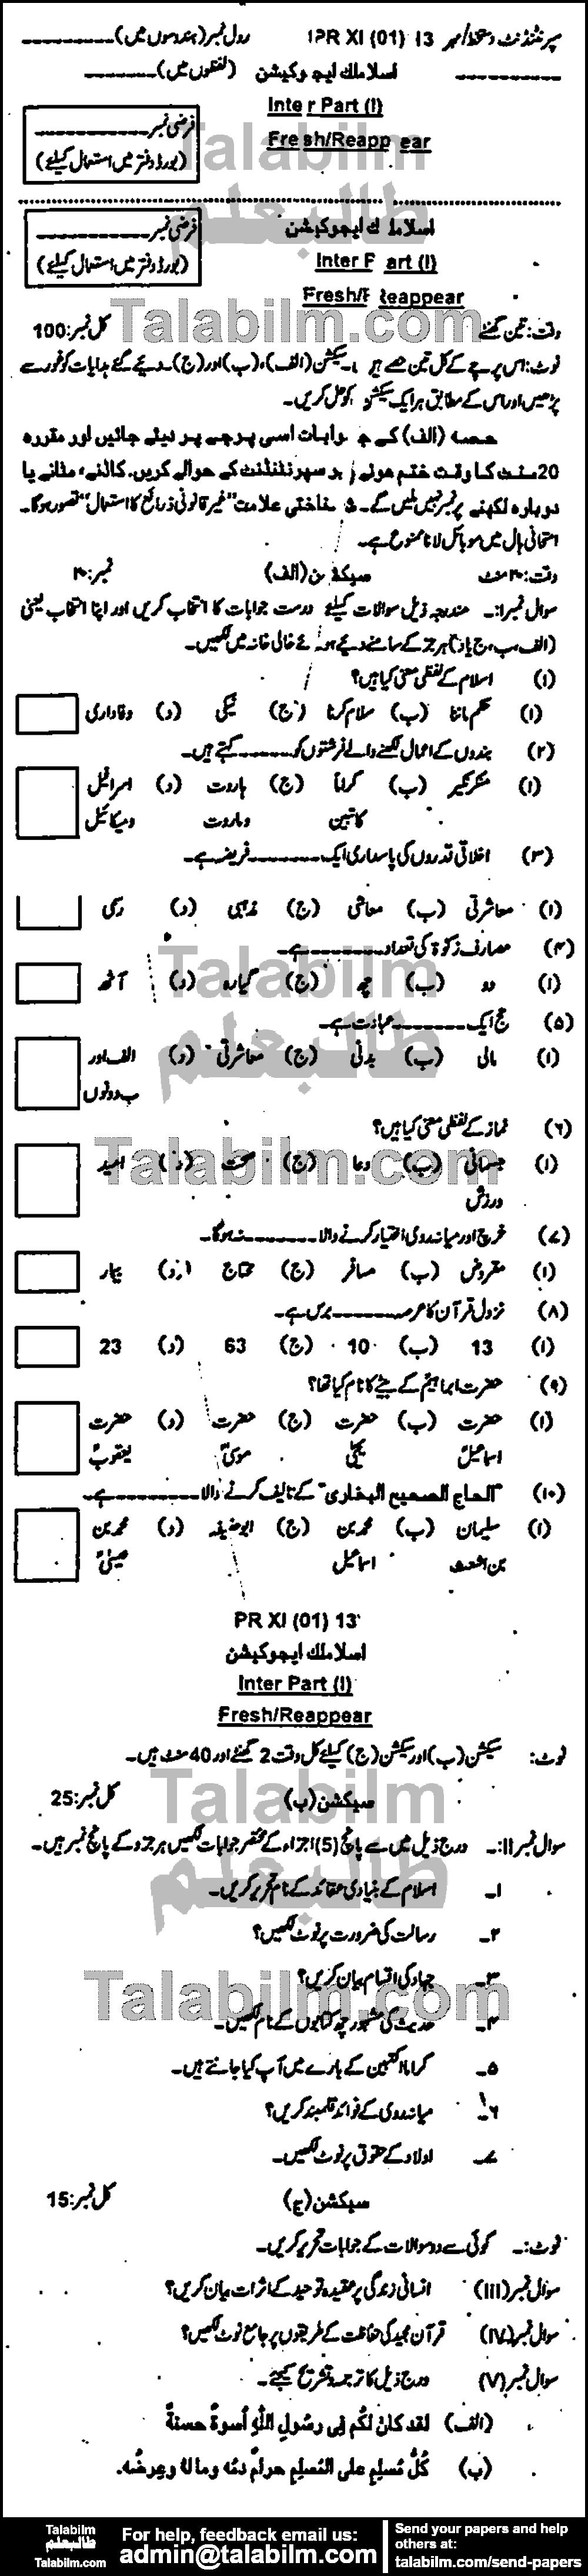 سپرنٹنڈنٹ دستخط/مہر PR XI (01) 13 رول نمبر (ہندسوں میں)
اسلامک ایجوکیشن (لفظوں میں)
Inter Part (I)
فرضی نمبر
Fresh/Reappear
(بورڈ دفتر میں استعمال کیلئے)
اسلامک ایجوکیشن
فرضی نمبر
Inter Part (I)
(بورڈ دفتر میں استعمال کیلئے)
Fresh/Reappear
وقت: تین گھنٹے کل نمبر: 100
نوٹ: اس پرچے کے کل تین حصے ہیں۔ سیکشن (الف)، (ب) اور (ج)۔ دیئے گئے ہدایات کو غور سے
پڑھیں اور اس کے مطابق ہر ایک سیکشن کو حل کریں۔
حصہ (الف) کے جوابات اسی پرچے پر دیئے جائیں اور مقررہ
20 منٹ کا وقت ختم ہوتے ہی سپرنٹنڈنٹ کے حوالے کریں۔ کاٹنے، مٹانے یا
دوبارہ لکھنے پر نمبر نہیں ملیں گے۔ شناختی علامت "غیر قانونی ذرائع کا استعمال" تصور ہوگا۔
امتحانی ہال میں موبائل لانا ممنوع ہے۔
وقت: ۲۰ منٹ سیکشن (الف) نمبر: ۲۰
سوال نمبر I:۔ مندرجہ ذیل سوالات کیلئے درست جوابات کا انتخاب کریں اور اپنا انتخاب یعنی
(الف، ب، ج یا د) ہر جز کے سامنے دیئے ہوئے خالی خانہ میں لکھیں۔
(۱) اسلام کے لفظی معنی کیا ہیں؟
(ا) حکم ماننا (ب) سلام کرنا (ج) نیکی (د) وفاداری
(۲) بندوں کے اعمال لکھنے والے فرشتوں کو ـــــــ کہتے ہیں۔
(ا) منکر نکیر (ب) کراماً (ج) ہاروت (د) اسرافیل
کاتبین وماروت ومیکائیل
(۳) اخلاقی قدروں کی پاسداری ایک ـــــــ فریضہ ہے۔
(ا) معاشرتی (ب) معاشی (ج) مذہبی (د) رسمی
(۴) مصارف زکوٰۃ کی تعداد ـــــــ ہے۔
(ا) دو (ب) چھ (ج) گیارہ (د) آٹھ
(۵) حج ایک ـــــــ عبادت ہے۔
(ا) مالی (ب) بدنی (ج) معاشرتی (د) الف اور
ب دونوں
(۶) نماز کے لفظی معنی کیا ہیں؟
(ا) جسمانی (ب) دعا (ج) صحت (د) امید
ورزش
(۷) خرچ اور میانہ روی اختیار کرنے والا ـــــــ نہ ہوگا۔
(ا) مقروض (ب) مسافر (ج) محتاج (د) بیمار
(۸) نزول قرآن کا عرصہ ـــــــ برس ہے۔
(ا) 13 (ب) 10 (ج) 63 (د) 23
(۹) حضرت ابراہیمؑ کے بیٹے کا نام کیا تھا؟
(ا) حضرت (ب) حضرت (ج) حضرت (د) حضرت
اسماعیلؑ یحییٰؑ موسیٰؑ یعقوبؑ
(۱۰) "الجامع الصحیح البخاری" کے تالیف کرنے والا ـــــــ ہے۔
(ا) سلیمان (ب) محمد بن (ج) ابوحنیفہ (د) محمد بن
بن اشعث اسماعیل عیسیٰ
PR XI (01) 13
اسلامک ایجوکیشن
Inter Part (I)
Fresh/Reappear
نوٹ: سیکشن (ب) اور سیکشن (ج) کیلئے کل وقت 2 گھنٹے اور 40 منٹ ہیں۔
سیکشن (ب) کل نمبر: 25
سوال نمبر II:۔ درج ذیل میں سے پانچ (5) اجزاء کے مختصر جوابات لکھیں ہر جزو کے پانچ نمبر ہیں۔
۱۔ اسلام کے بنیادی عقائد کے نام تحریر کریں۔
۲۔ رسالت کی ضرورت پر نوٹ لکھیں؟
۳۔ جہاد کی اقسام بیان کریں؟
۴۔ حدیث کی مشہور چھ کتابوں کے نام لکھیں۔
۵۔ کراماً کاتبین کے بارے میں آپ کیا جانتے ہیں۔
۶۔ میانہ روی کے فوائد قلمبند کریں؟
۷۔ اولاد کے حقوق پر نوٹ لکھیں۔
سیکشن (ج) کل نمبر: 15
نوٹ:۔ کوئی سے دو سوالات کے جوابات تحریر کریں۔
سوال نمبر (III) انسانی زندگی پر عقیدہ توحید کے اثرات بیان کریں؟
سوال نمبر (IV) قرآن مجید کی حفاظت کے طریقوں پر جامع نوٹ لکھیں؟
سوال نمبر (V) درج ذیل کا ترجمہ و تشریح کیجئے۔
(الف) لقد کان لکم فی رسول اللہ اُسوۃٌ حسنۃٌ
(ب) کُلُّ المُسلِمِ علی المُسلِمِ حرامٌ دمُہ ومالہ وعِرضُہ۔
Talabilm
طالبعلم
Talabilm.com
For help, feedback email us:
admin@talabilm.com
Send your papers and help
others at:
talabilm.com/send-papers